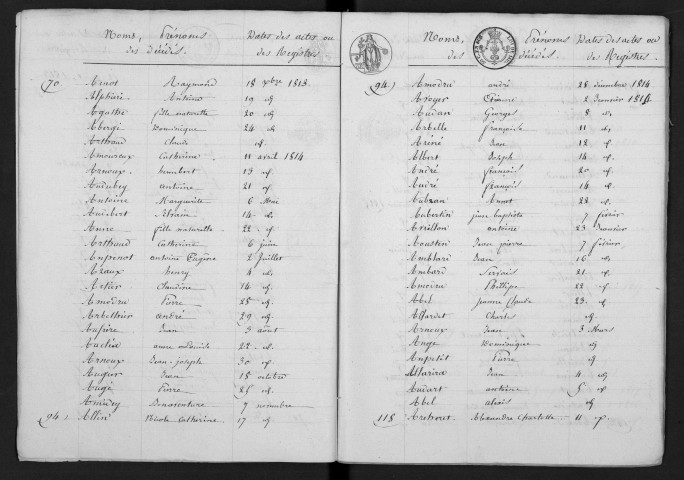 Noms, Prénoms Dates des actes ou
des décédés. des Registres
70 Arnot Raymond 18 xbre 1813.
Alphieri Antoine 19 d
Agathe fille naturelle 20 d
Abergi Dominique 24 d
Arthaud Claude d
Amoureux Catherine 11 avril 1814
Arnoux humbert 13 d
Audubey antoine 21 d
Antoine Marguerite 6 Mai
Audibert Etienne 14 d
Anne fille naturelle 22 d
Arthaud Catherine 6 juin
Aufrenot antoine Eugène 2 Juillet
Azaux henry 4 d
Artier Claudine 14 d
Amodru Pierre 25 d
Arbelthier andré 29 d
Aufière Jean 3 août
Auclia anne Louise 22 d
Arnoux Jean-joseph 30 d
Augier Jean 18 octobre
Augé Pierre 25 d
Amédey Bonaventure 7 novembre
94 Allin Nicole Catherine 17 d
Noms, Prénoms Dates des actes ou
des décédés de Registres
94 Amodru andré 28 décembre 1814
Arroyer Etienne 2 Janvier 1815
Audan Georges 8 d
Arbelle françoise 11 d
Aréné Jean 12 d
Albert Joseph 14 d
André françois 20 d
Audré françois 14 d
Aubran Annet 22 d
Aubertin jean baptiste 7 février
Avrillon antoine 23 Janvier
Aoustin Jean pierre 7 février
Amblard Jean 16 d
Ambard Servais 21 d
Amoiru Philippe 22 d
Abel jeanne Claude 23 d
Allardet Charles d
Arnoux Jean 3 Mars
Ange Dominique d
Aupetit Pierre d
Allarira Jean 4 d
Audart antoine 5 d
Abel alexis d
118 Arthouet Alexandre Charlotte 11 d